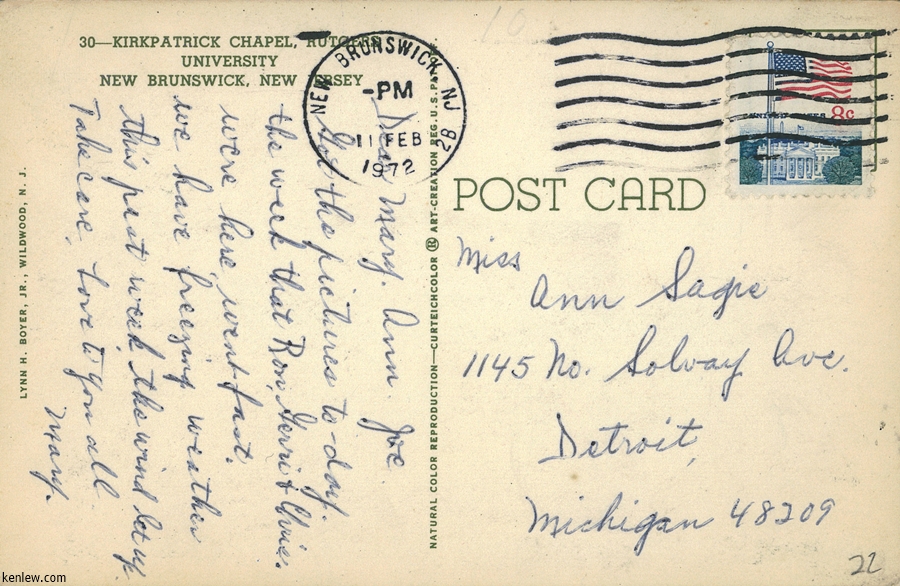 30—KIRKPATRICK CHAPEL, RUTGERS
UNIVERSITY
NEW BRUNSWICK, NEW JERSEY
NEW BRUNSWICK, NJ
-PM
11 FEB
1972
2B
8¢
LYNN H. BOYER, JR., WILDWOOD, N. J.
Dear Mary. Ann. Joe
Got the pictures to-day.
the week that Ron, Gerri & Chris.
were here, went fast.
we have freezing weather
this past week, the wind let up.
Take care, Love to you all
Mary.
NATURAL COLOR REPRODUCTION—CURTEICHCOLOR ® ART-CREATION REG. U.S. PAT.
POST CARD
Miss
Ann Sagie
1145 No. Solvay Ave.
Detroit,
Michigan 48209
22
kenlew.com